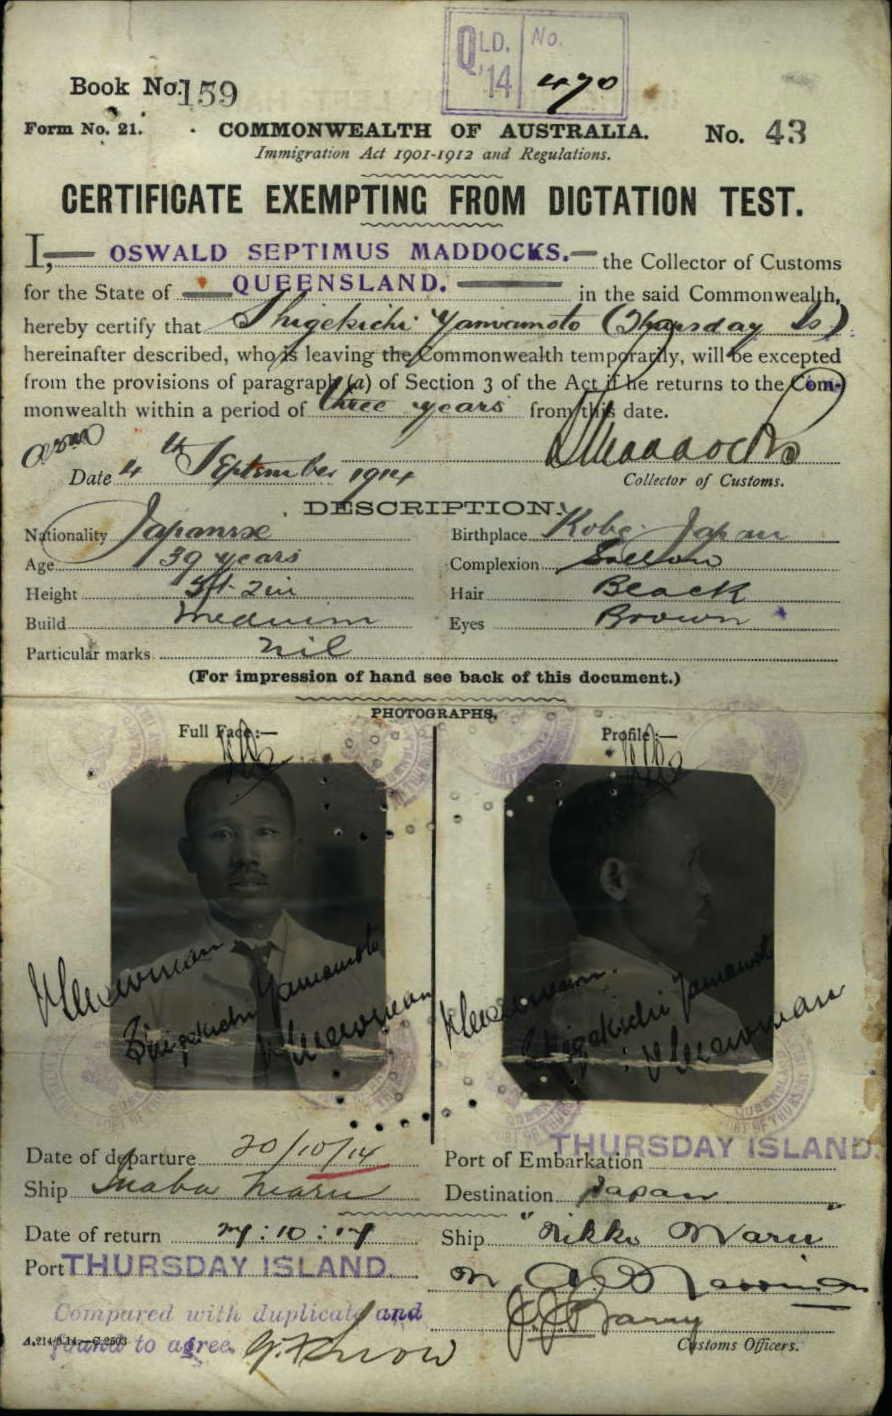 QLD. No.
'14 470
Book No. 159
Form No. 21. COMMONWEALTH OF AUSTRALIA. No. 43
Immigration Act 1901-1912 and Regulations.
CERTIFICATE EXEMPTING FROM DICTATION TEST.
I, OSWALD SEPTIMUS MADDOCKS. the Collector of Customs
for the State of QUEENSLAND. in the said Commonwealth,
hereby certify that Shigekichi Yamamoto (Thursday Is)
hereinafter described, who is leaving the Commonwealth temporarily, will be excepted
from the provisions of paragraph (a) of Section 3 of the Act if he returns to the Com-
monwealth within a period of three years from this date.
OSMaddocks
Date 4th September 1914 Collector of Customs.
DESCRIPTION.
Nationality Japanese Birthplace Kobe Japan
Age 39 years Complexion Sallow
Height 5ft 2in Hair Black
Build Medium Eyes Brown
Particular marks nil
(For impression of hand see back of this document.)
PHOTOGRAPHS.
Full Face:— Profile:—
Shigekichi Yamamoto Shigekichi Yamamoto
Date of departure 20/10/14 Port of Embarkation THURSDAY ISLAND.
Ship Inaba Maru Destination Japan
Date of return Ship Nikko Maru
Port THURSDAY ISLAND.
Compared with duplicate and
found to agree.
Customs Officers.